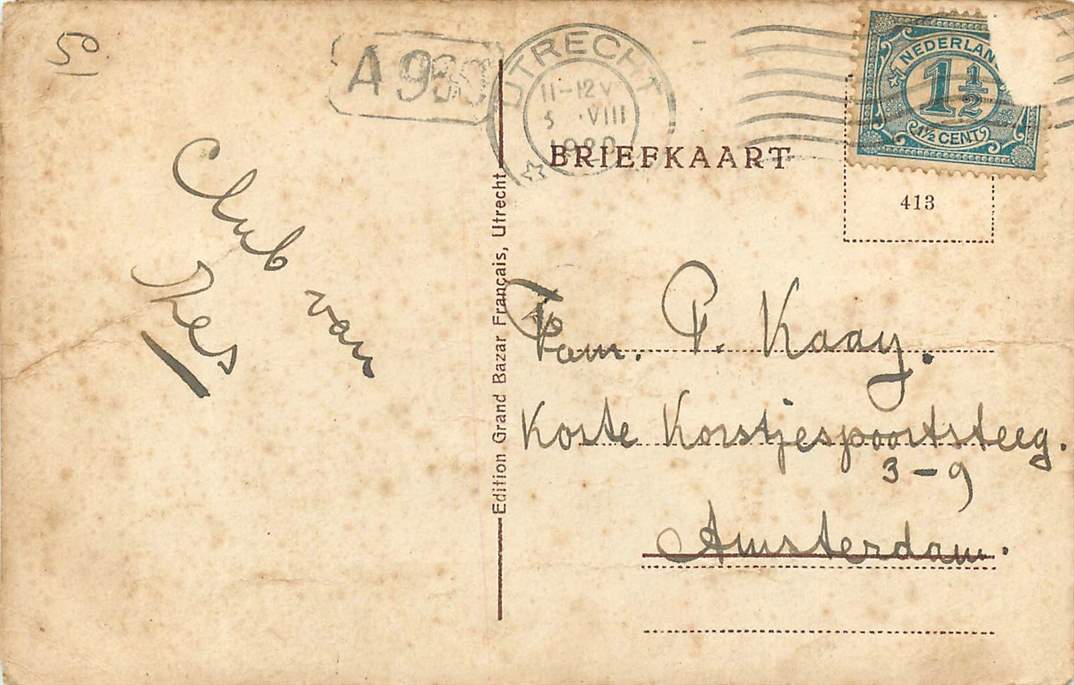 50
UTRECHT
11-12V
5 VIII
1920
NEDERLAN
1 1/2
1 1/2 CENT
BRIEFKAART
413
Club van
Edition Grand Bazar Français, Utrecht
Fam. P. Kaay.
Korte Korstjespoortsteeg.
3-9
Amsterdam.